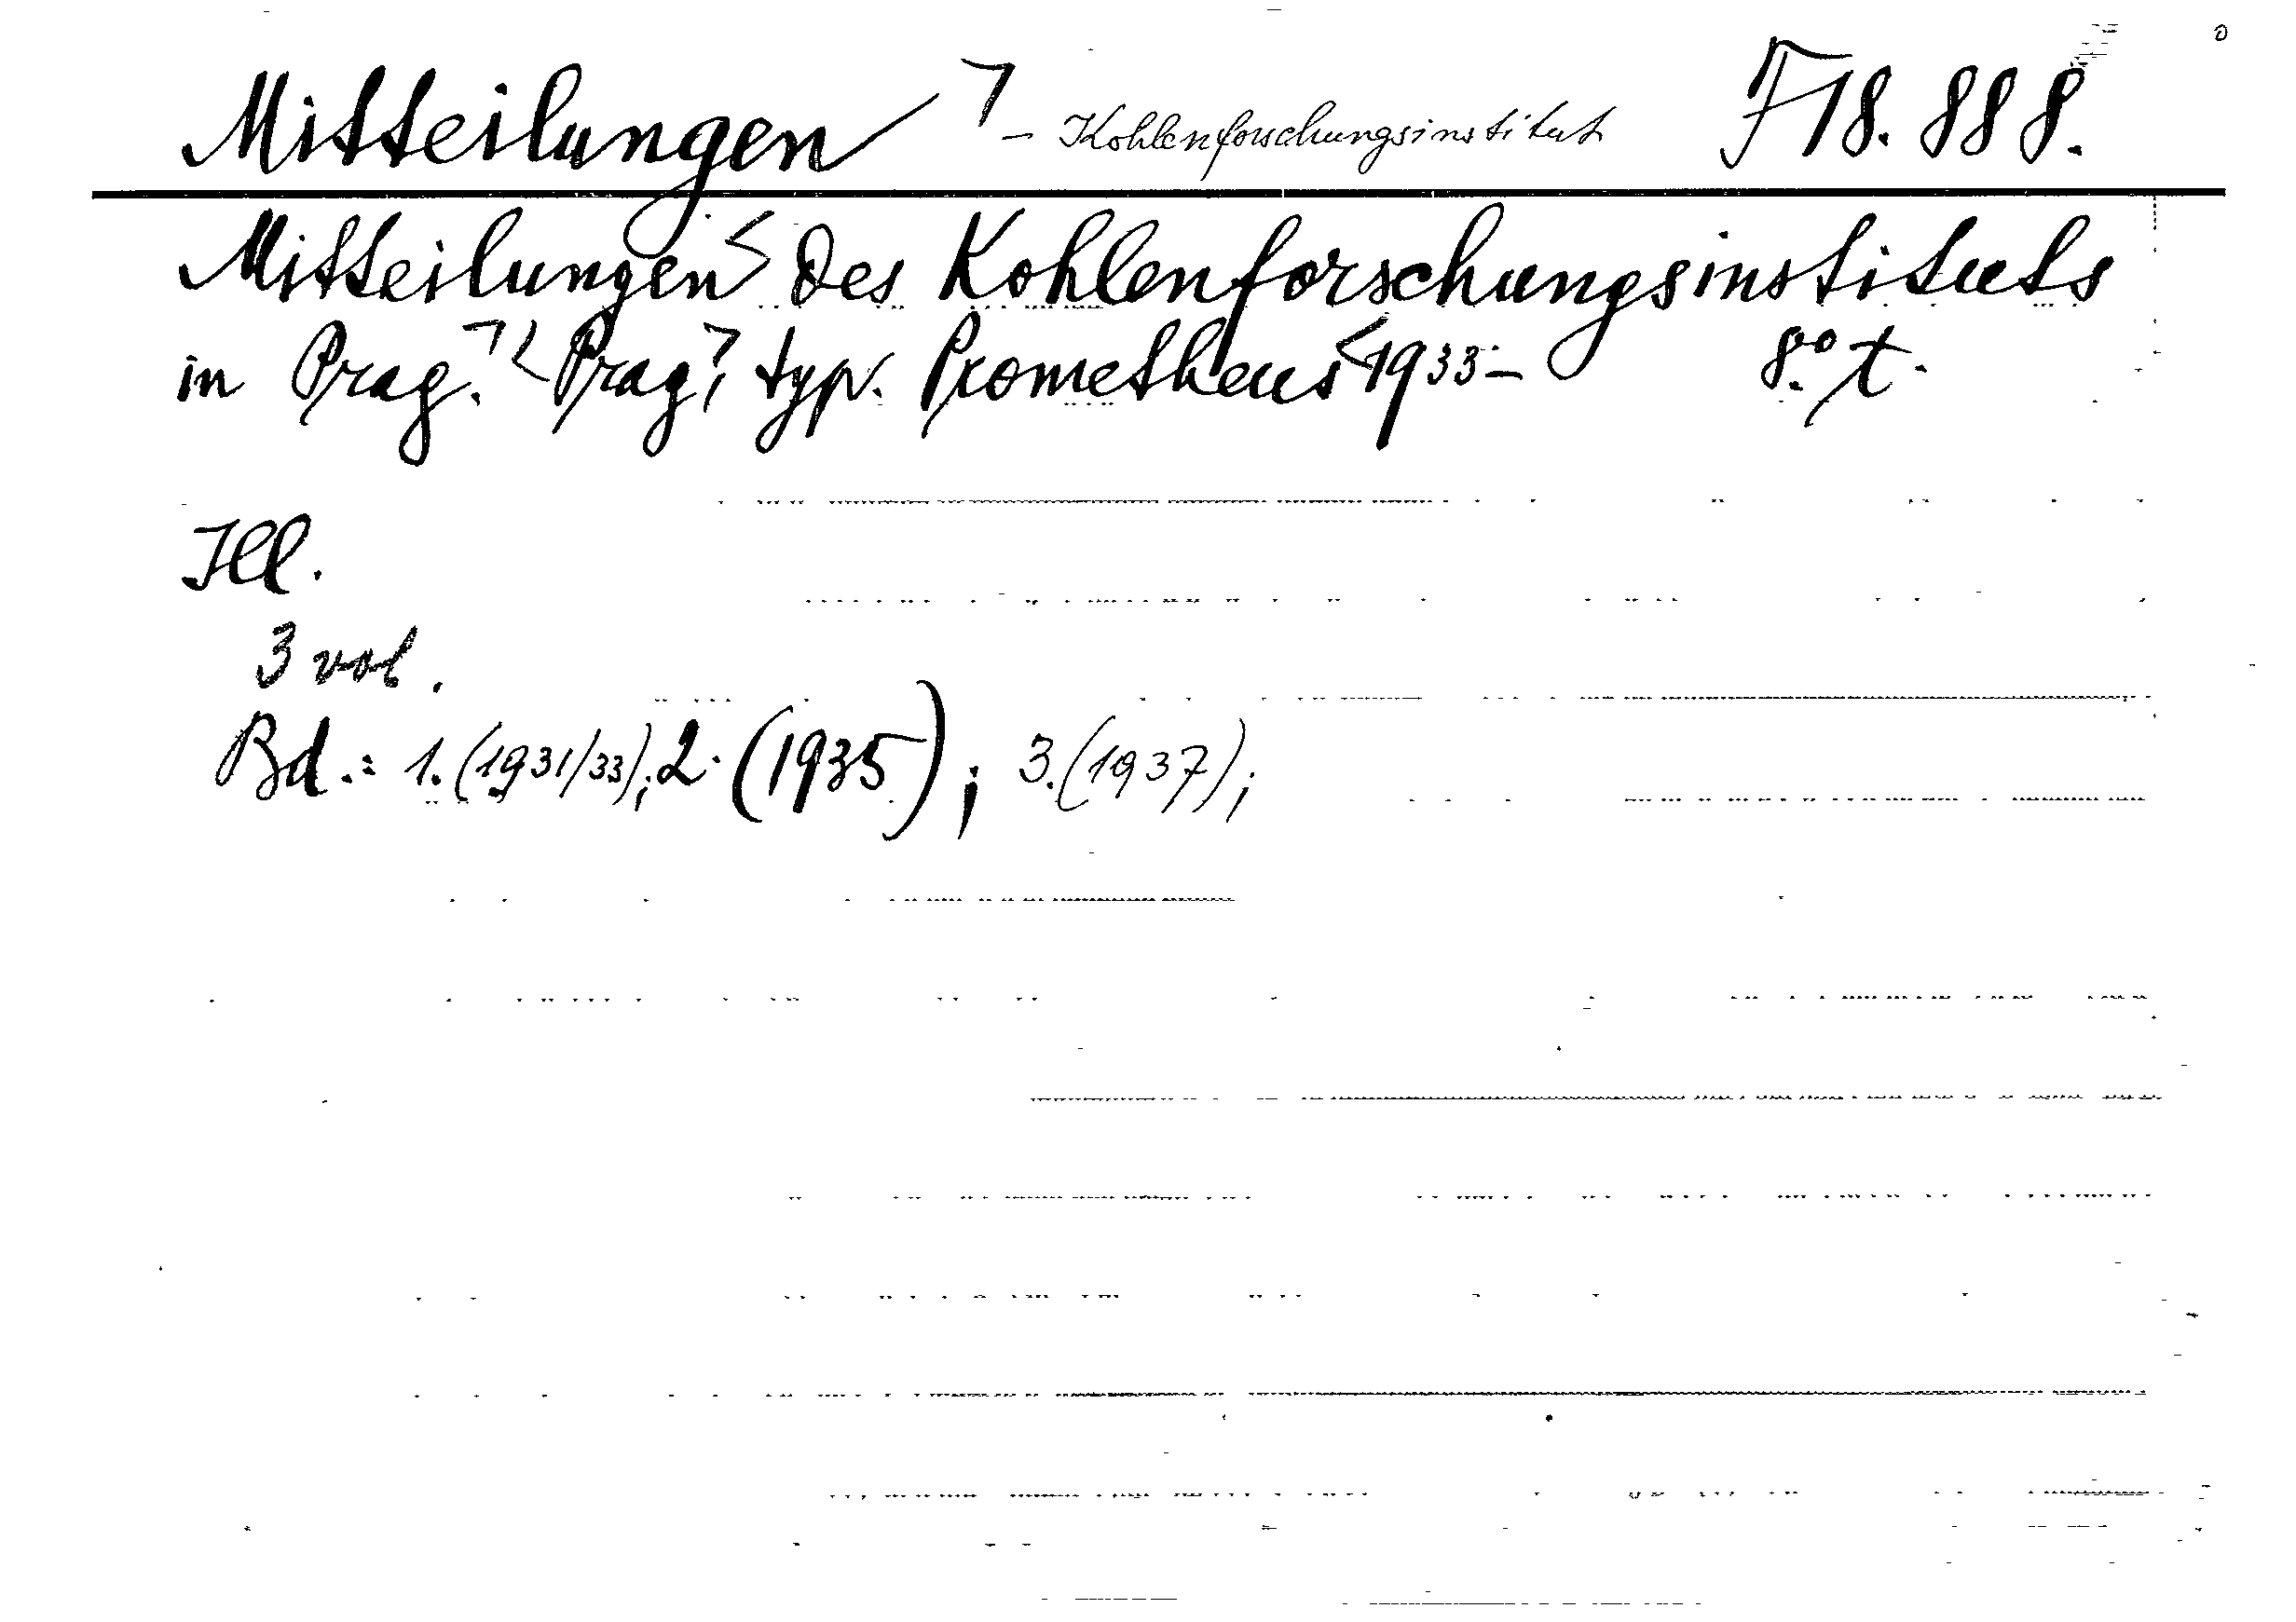 Mitteilungen ⌝ – Kohlenforschungsinstitut F 18.888.
Mitteilungen < des Kohlenforschungsinstituts
in Prag. ⌝ < Prag, ⌝ typ. Prometheus < 1933– 8.° t.
Ill.
3 vol.
Bd.: 1. (1931/33); 2. (1935); 3. (1937);